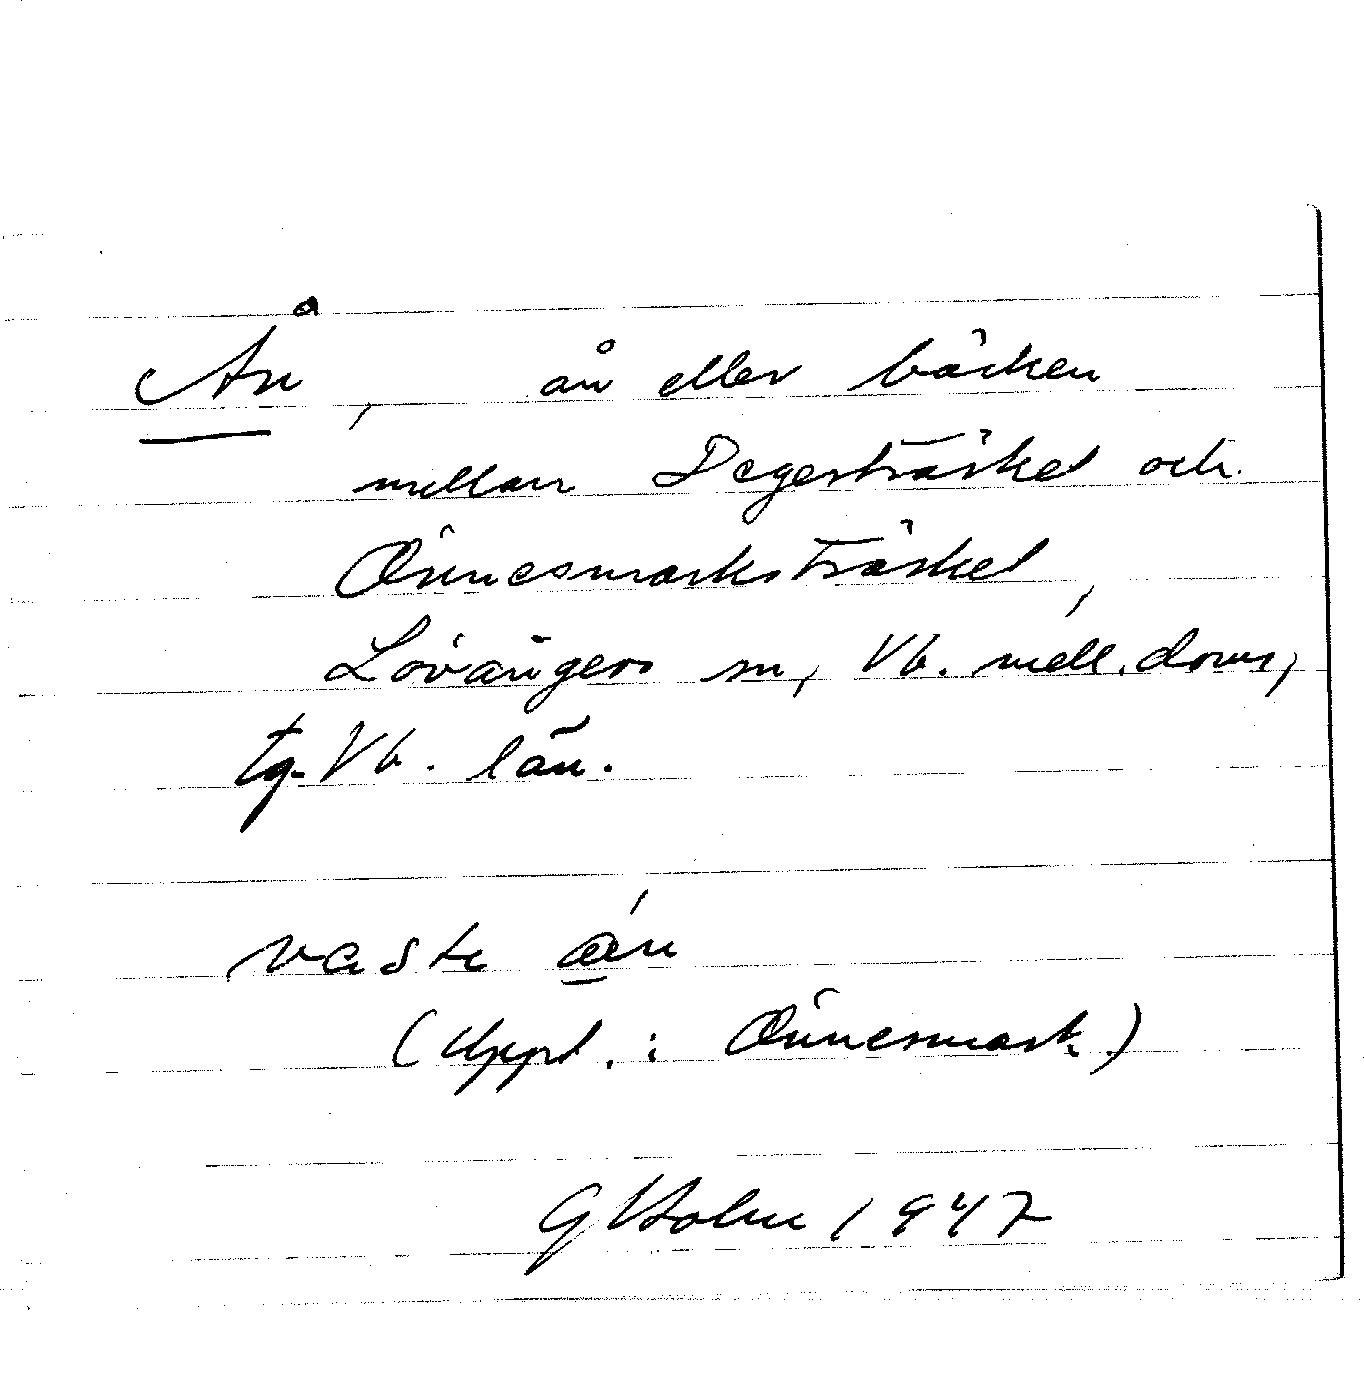 Ån, ån eller bäcken
mellan Degerträsket och
Önnesmarksträsket,
Lövångers sn, Vb. mell. doms,
tg. Vb. län.
vaste
(Uppt. i Önnesmark.)
G Holm 1947